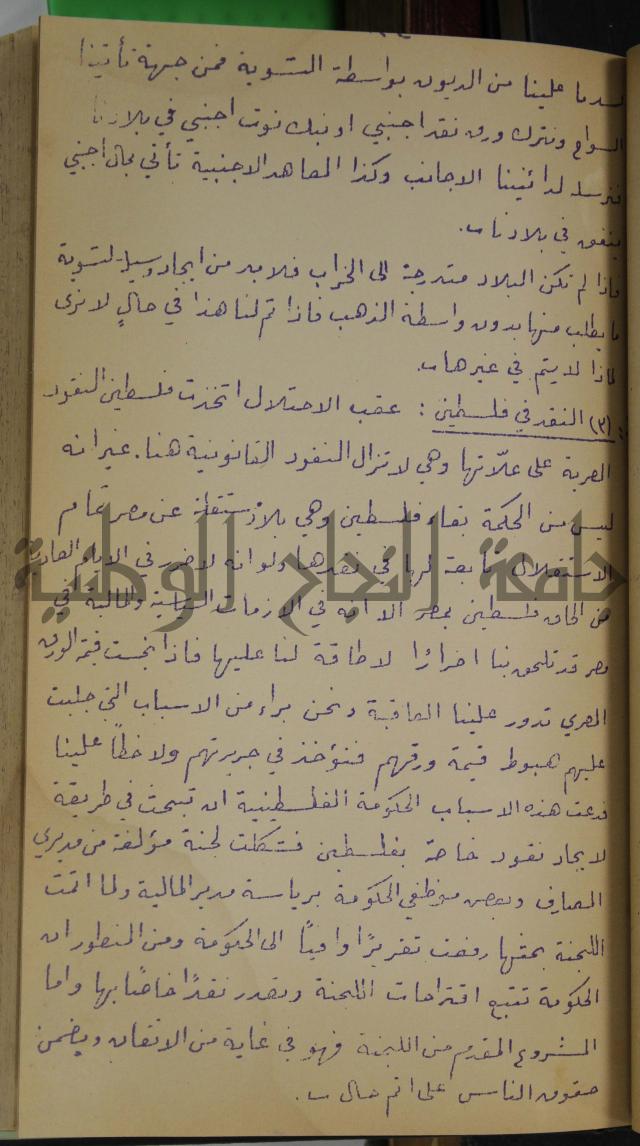 لسد ما علينا من الديون بواسطة التسوية فمن جهة تأتينا
السواح ونترك ورق نقد اجنبي او بنك نوت اجنبي في بلادنا
فنرسله لدائنينا الاجانب وكذا المعاهد الاجنبية تأتي بمال اجنبي
ينفق في بلادنا.
فاذا لم تكن البلاد متدرجة الى الخراب فلا بد من ايجاد وسيلة لتسوية
ما يطلب منها بدون واسطة الذهب فاذا تم لنا هذا في حالٍ لا نرى
لماذا لا يتم في غيرها.
(٣) النقد في فلسطين : عقب الاحتلال اتخذت فلسطين النقود
المصرية على علّاتها وهي لا تزال النقود القانونية هنا . غير انه
ليس من الحكمة بقاء فلسطين وهي بلاد مستقلة عن مصر تمام
الاستقلال تابعة لها في نقدها ولو انه لا ضرر في الايام العادية
من الحاق فلسطين بمصر الا انه في الازمات السياسية والمالية ففي
مصر قد تلحق بنا اضرارًا لا طاقة لنا عليها فاذا بخست قيمة الورق
المصري تدور علينا العاقبة ونحن براء من الاسباب التي جلبت
عليهم هبوط قيمة ورقهم فنؤخذ في جريرتهم ولا خطأ علينا
فدعت هذه الاسباب الحكومة الفلسطينية ان تبحث في طريقة
لايجاد نقود خاصة بفلسطين فتشكلت لجنة مؤلفة من مديري
المصارف وبعض موظفي الحكومة برياسة مدير المالية ولما اتمت
اللجنة بحثها رفعت تقريرًا وافيًا الى الحكومة ومن المنظور ان
الحكومة تتبع اقتراحات اللجنة وتصدر نقدًا خاصًا بها واما
المشروع المقدم من اللجنة فهو في غاية من الاتقان ويضمن
حقوق الناس على اتم حال.
جامعة النجاح الوطنية